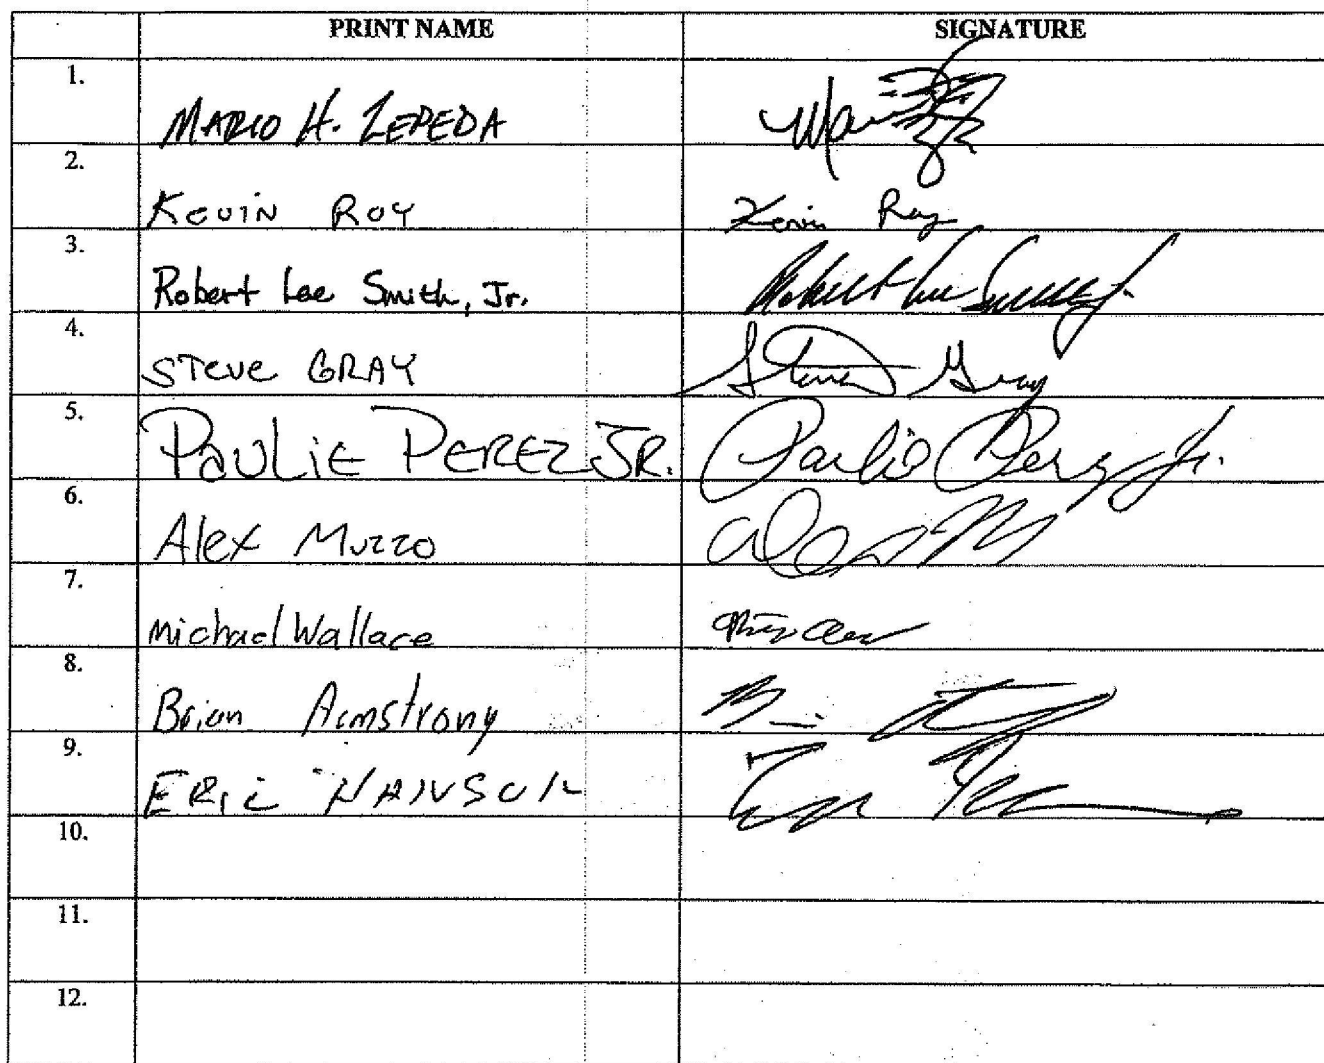 PRINT NAME SIGNATURE
1. MARIO H. ZEPEDA
2. KEVIN ROY Kevin Roy
3. Robert Lee Smith, Jr. Robert Lee Smith Jr.
4. STEVE GRAY Steven Gray
5. PAULIE PEREZ JR. Paulie Perez Jr.
6. Alex Muzzo Alex M
7. Michael Wallace
8. Brian Armstrong
9. ERIC HANSON
10.
11.
12.